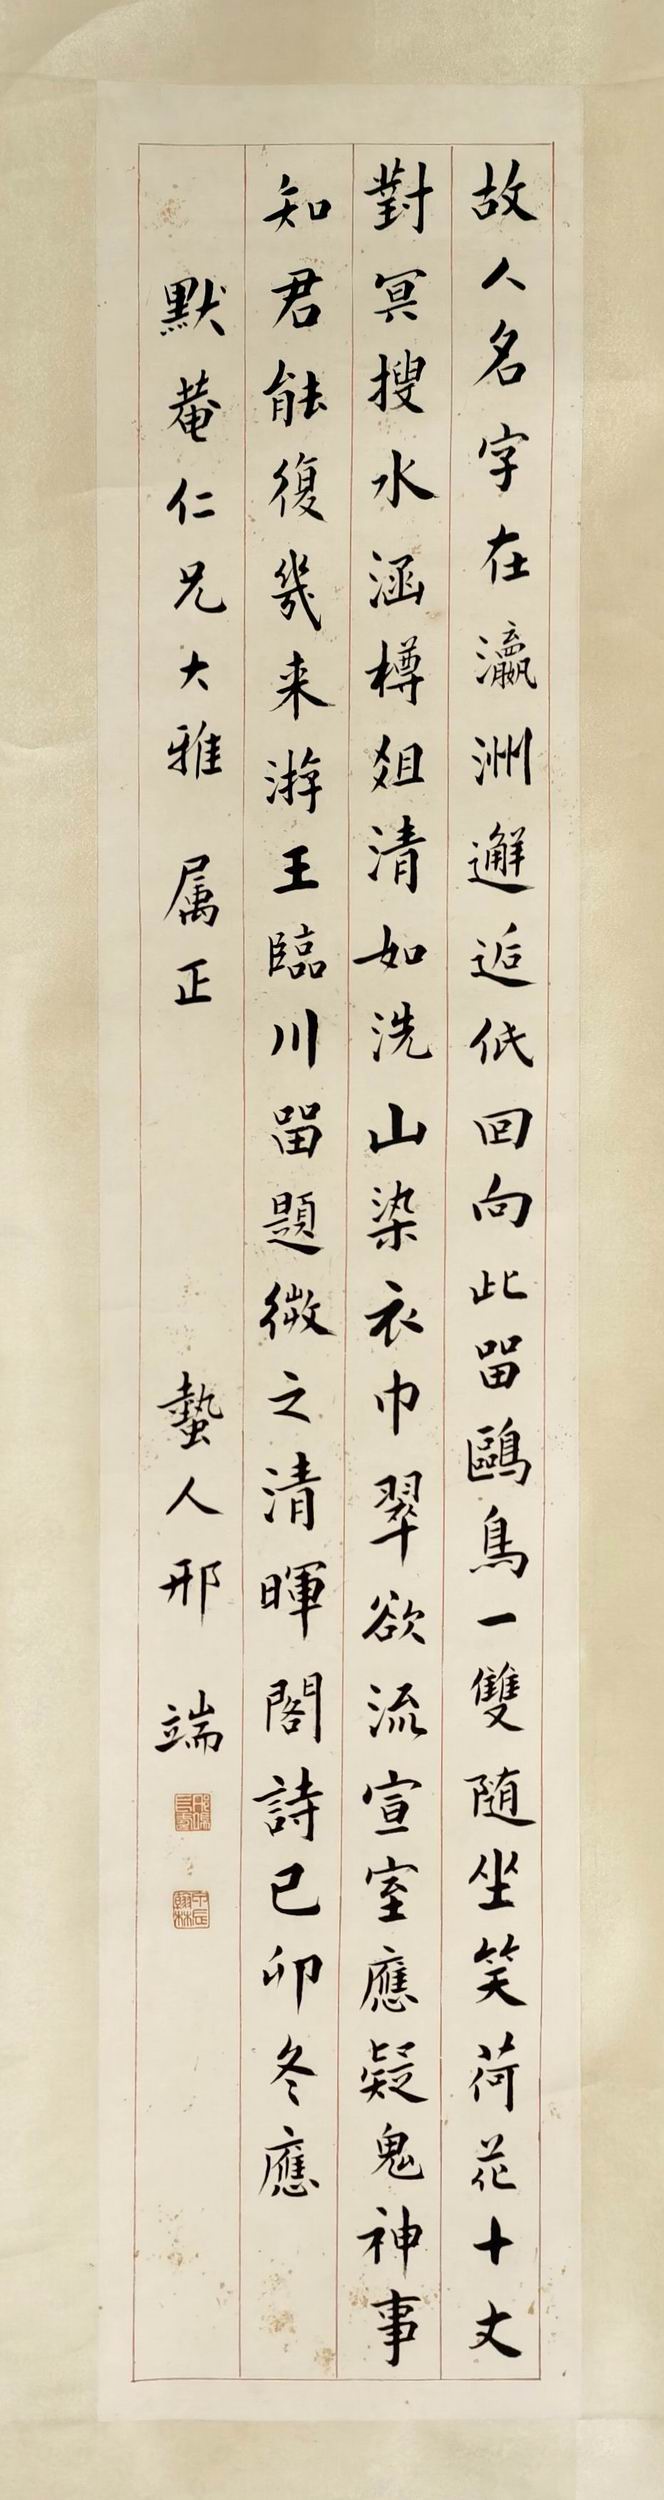 故人名字在瀛洲邂逅低回向此畱鷗鳥一雙随坐笑荷花十丈
對冥搜水涵樽俎清如洗山染衣巾翠欲流宣室應疑鬼神事
知君能復幾来游王臨川畱題微之清暉閣詩己卯冬應
默菴仁兄大雅属正
蟄人邢端
邢端長壽
甲辰翰林